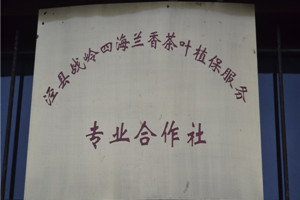 泾县战岭四海兰香茶叶植保服务
专业合作社